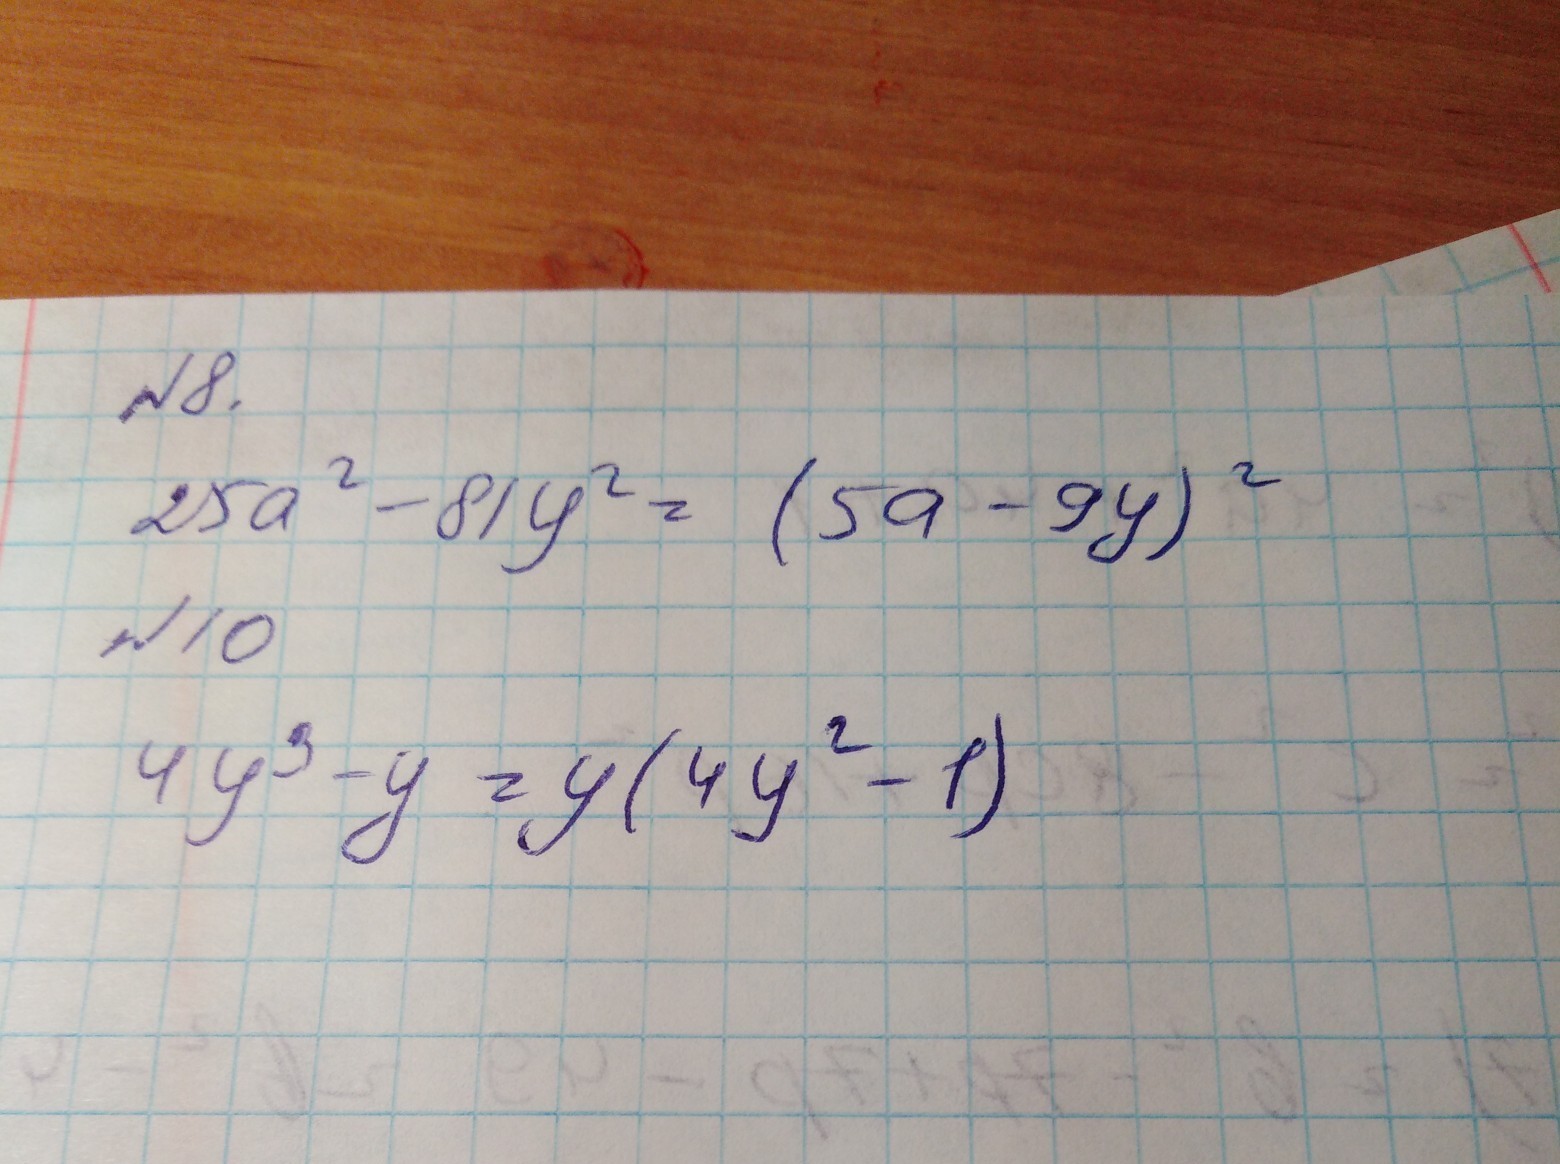 №8.
25a² - 81y² = (5a - 9y)²
№10
4y³ - y = y(4y² - 1)